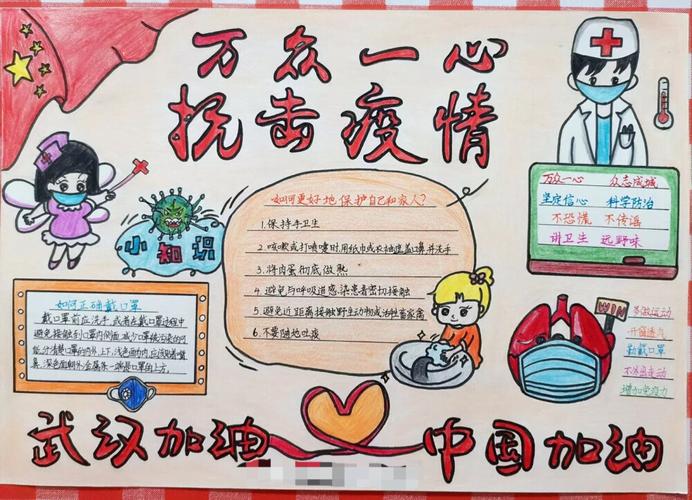 万众一心
抗击疫情
小知识
如何更好地保护自己和家人?
1.保持手卫生
2.咳嗽或打喷嚏时用纸巾或衣袖遮盖口鼻,并洗手
3.将肉蛋彻底做熟
4.避免与呼吸道感染患者密切接触
5.避免近距离接触野生动物或活牲畜家禽
6.不要随地吐痰
万众一心 众志成城
坚定信心 科学防治
不恐慌 不传谣
讲卫生 远野味
如何正确戴口罩
戴口罩前应洗手,或者在戴口罩过程中
避免接触到口罩内侧面,减少口罩被污染的可
能,分清楚口罩的内外、上下,浅色面为内,应该贴着嘴
鼻,深色面朝外,金属条一端是口罩的上方。
WIN
多做运动
开窗通风
勤戴口罩
增加免疫力
武汉加油
中国加油